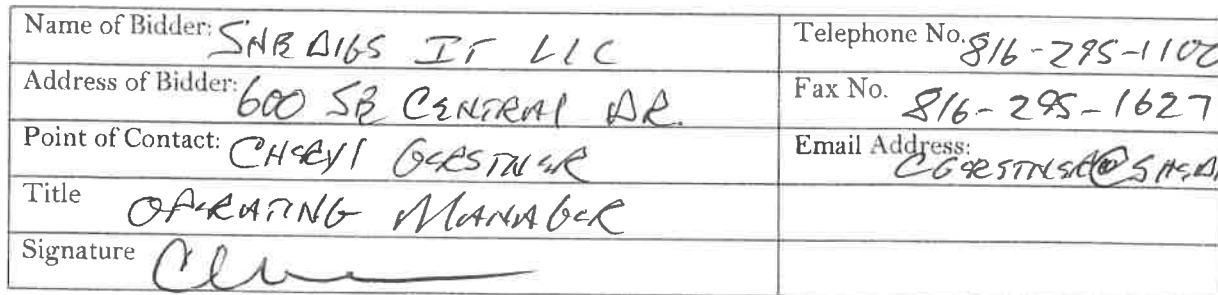 Name of Bidder: SHE DIGS IT LLC
Telephone No. 816-295-1100
Address of Bidder: 600 SE CENTRAL DR.
Fax No. 816-295-1627
Point of Contact: CHERYl GERSTNER
Email Address: CGERSTNER@SHED
Title OPERATING MANAGER
Signature